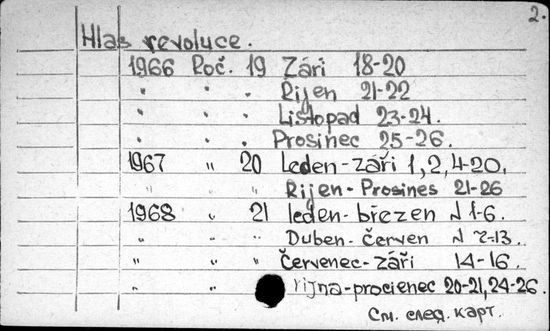 2.
Hlas revoluce.
1966 Roč. 19 Zári 18-20
" " " Rijen 21-22
" " " Listopad 23-24.
" " " Prosinec 25-26.
1967 " 20 leden-září 1,2,4-20.
" " " Rijen-Prosines 21-26
1968 " 21 leden-březen N 1-6.
" " " Duben-Červen N 7-13.
" " " Červenec-září 14-16.
" " rijna-procienec 20-21,24-26.
См. след. карт.